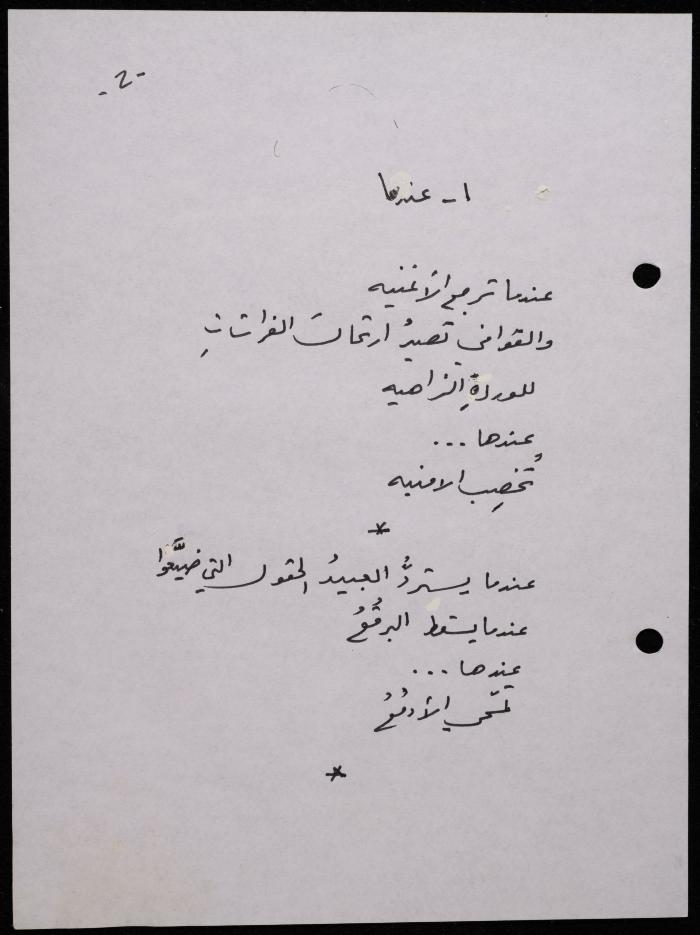 -2-
1- عندما
عندما ترجع الأغنيه
والقوافي تصيرُ ارتحالَ الفراشاتِ
للوردةِ الزاهيه
عندها ...
تُخصِب الامنيه
*
عندما يستردُّ العبيدُ الحقول التي ضيَّعوا
عندما يسقط البرقُعُ
عندها ...
تمَّحي الأدمُعُ
*